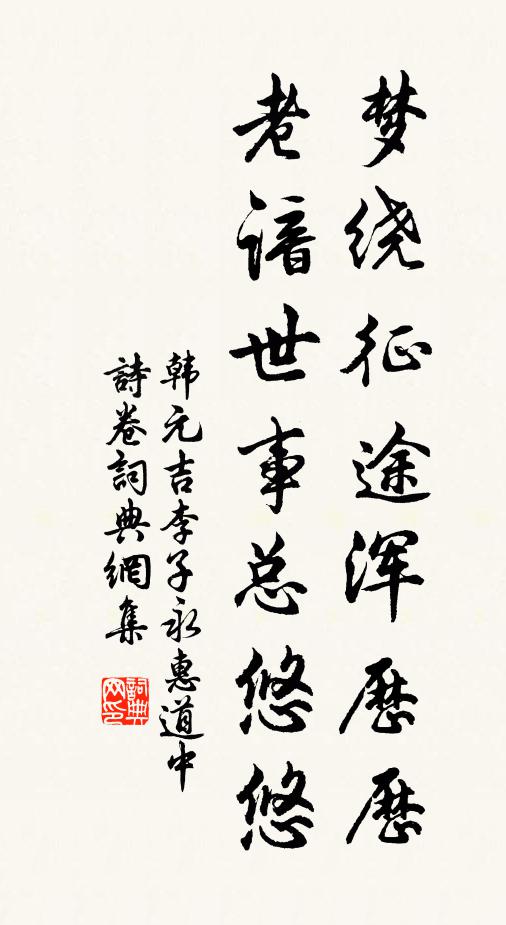 梦绕征途浑歷歷
老谙世事总悠悠
韩元吉李子永惠道中
詩卷詞典網集
詞典网印